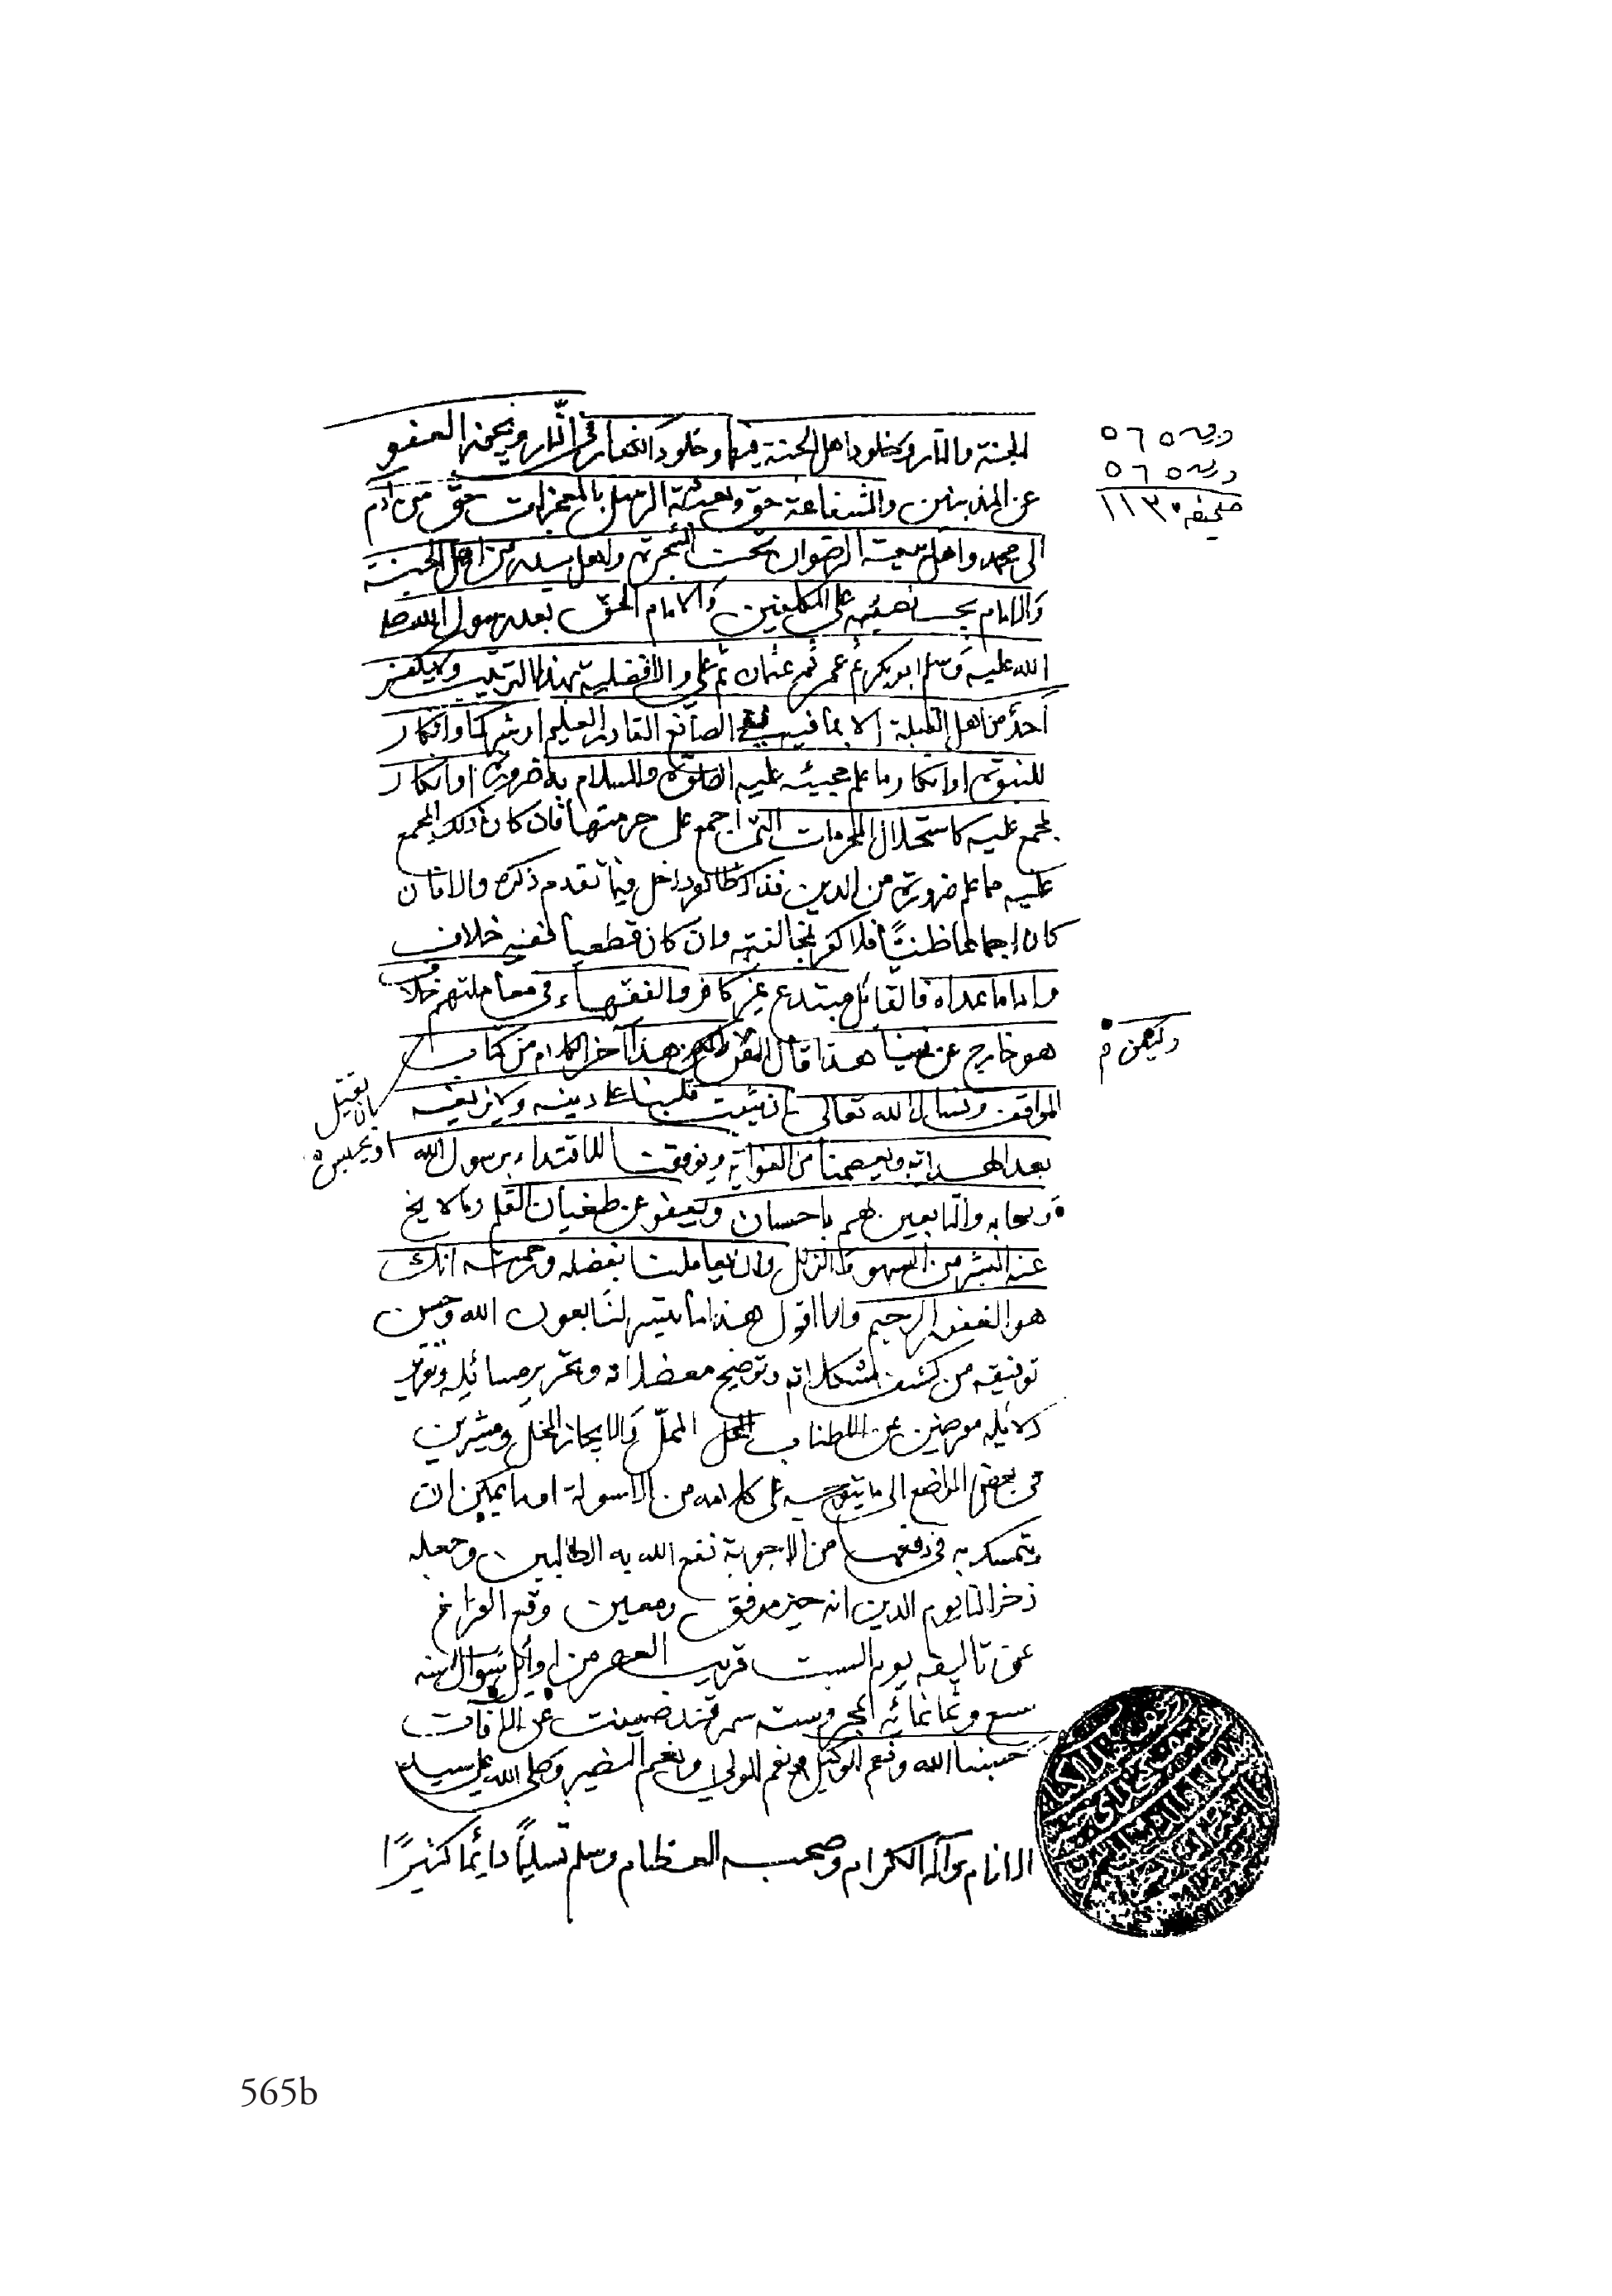 الجنة والنار وكخلود اهل الجنة فيها وخلود الكفار في النار ويجوز العفو
عن المذنبين والشفاعة حق وبعثة الرسل بالمعجزات حق من آدم
الى محمد واهل بيعة الرضوان تحت الشجرة واهل بدر من اهل الجنة
والامام يجب نصبه على المكلفين والامام الحق بعد رسول الله صلى
الله عليه وسلم ابو بكر ثم عمر ثم عثمان ثم علي والافضلية بهذا الترتيب ولا يكفر
احد من اهل القبلة الا بما فيه نفي الصانع القادر العليم او شرك او انكار
للنبوة او انكار ما علم مجيئه عليه الصلوة والسلام به ضرورة او انكار
لمجمع عليه كاستحلال المحرمات التي اجمع على حرمتها فان كان ذلك المجمع
عليه مما علم ضرورة من الدين فذاك ظاهر داخل فيما تقدم ذكره والا فان
كان اجماعا ظنيا فلا كفر بمخالفته وان كان قطعيا ففيه خلاف
واما ما عداه فالقائل مبتدع غير كافر وللفقهاء في معاملتهم خلاف
هو خارج عن فننا هذا قال هذا آخر الكلام من كتاب
المواقف ونسال الله تعالى ان يثبت قلبنا على دينه ولا يزيغه
بعد الهداية ويعصمنا من الغواية ويوفقنا للاقتداء برسول الله
وصحابه والتابعين لهم باحسان ويعفو عن طغيان القلم وما لا يخ
عنه البشر من السهو والزلل وان يعاملنا بفضله ورحمته انك
هو الغفور الرحيم وانا اقول هذا ما تيسر لنا بعون الله وحسن
توفيقه من كشف مشكلاته وتوضيح معضلاته وتحرير مسائله وتقرير
دلائله معرضين عن الاطناب الممل والايجاز المخل ومشيرين
في بعض المواضع الى ما يتوجه على كلامه من الاسولة او ما يمكن ان
يتمسك به في دفعها من الاجوبة نفع الله به الطالبين وجعله
ذخرا لنا يوم الدين انه خير موفق ومعين وقع الفراغ
عن تاليفه يوم السبت قريب العصر من اوائل شوال سنه
سبع وثمانمائه بمحروسة سمرقند صينت عن الآفات
حسبنا الله ونعم الوكيل ونعم المولى ونعم النصير وصلى الله على سيد
الانام وآله الكرام وصحبه العظام وسلم تسليما دائما كثيرا
ورقه ٥٦٥
ورقه ٥٦٥
صحيفه ١١٣٠
بان يقتل
او يحبس
565b